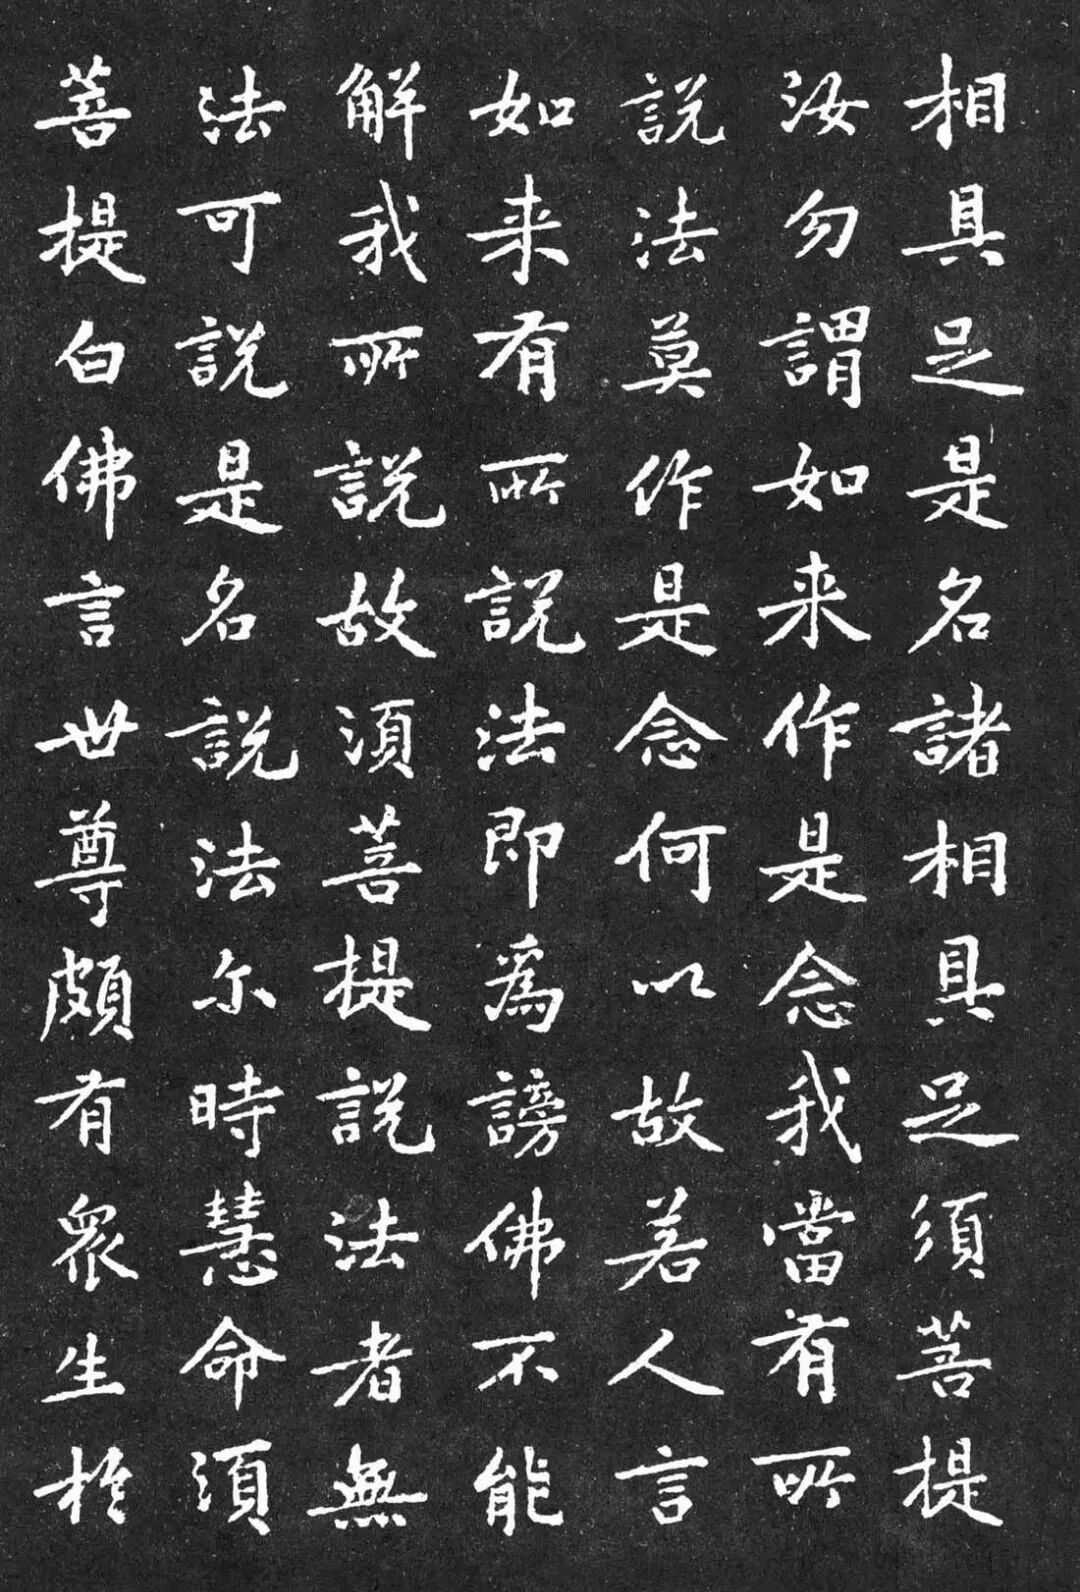 相具足是名諸相具足須菩提
汝勿謂如来作是念我當有所
說法莫作是念何以故若人言
如来有所說法即為謗佛不能
解我所說故須菩提說法者無
法可說是名說法尔時慧命須
菩提白佛言世尊頗有眾生於